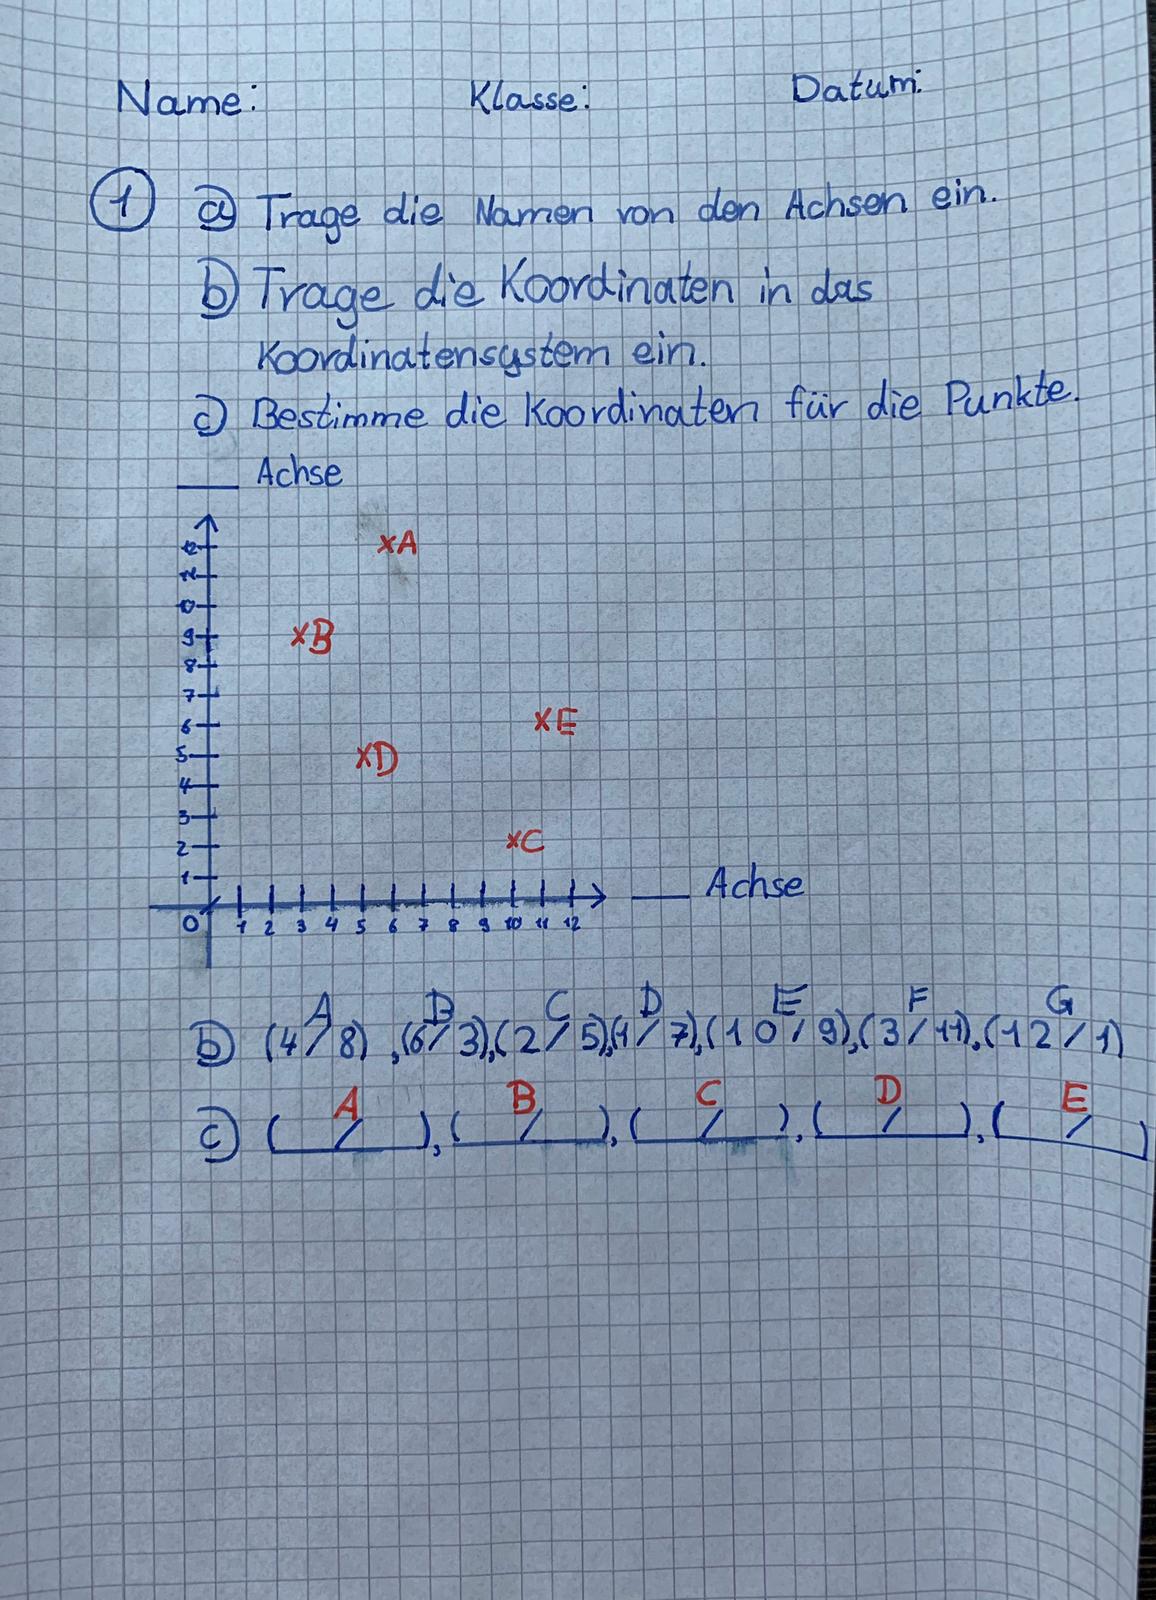 Name: Klasse: Datum:
1 a) Trage die Namen von den Achsen ein.
b) Trage die Koordinaten in das
Koordinatensystem ein.
c) Bestimme die Koordinaten für die Punkte.
___ Achse
12 xA
11
10
9 xB
8
7
6 xE
5 xD
4
3
2 xC
1
___ Achse
0 1 2 3 4 5 6 7 8 9 10 11 12
A B C D E F G
b) (4/8), (6/3), (2/5), (1/7), (10/9), (3/11), (12/1)
A B C D E
c) ( / ), ( / ), ( / ), ( / ), ( / )